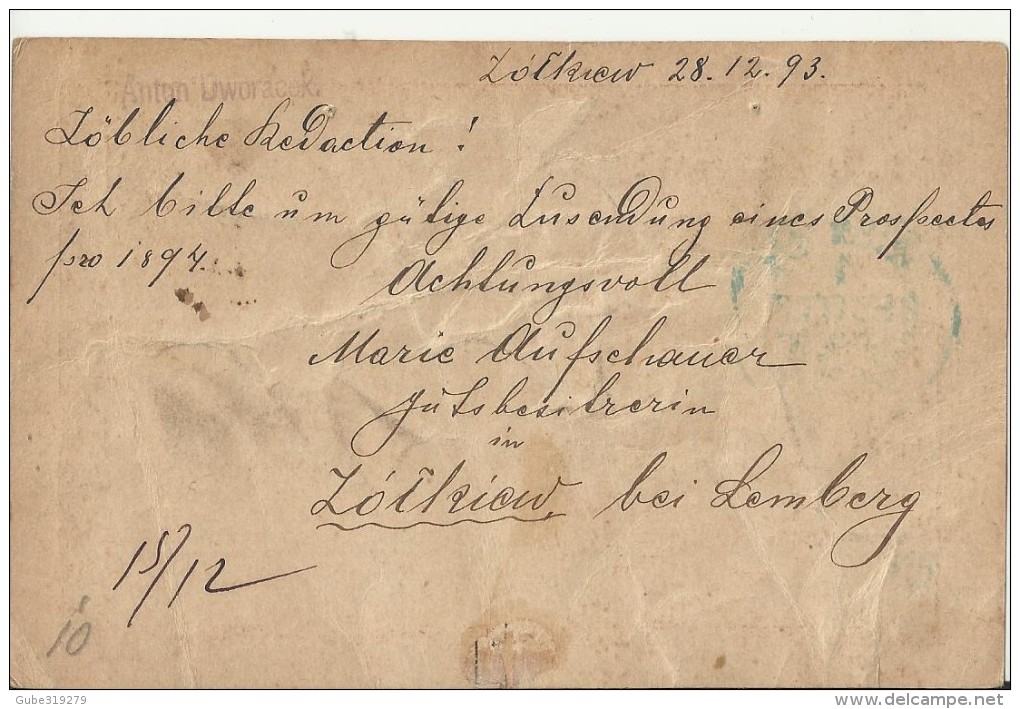 Żółkiew 28.12.93.
Anton Dworacek.
Löbliche Redaction!
Ich bitte um gütige Zusendung eines Prospectes
pro 1894.
Achtungsvoll
Marie Aufschauer
Gutsbesitzerin
in
Żółkiew bei Lemberg
15/12
10
Gube319279
www.delcampe.net